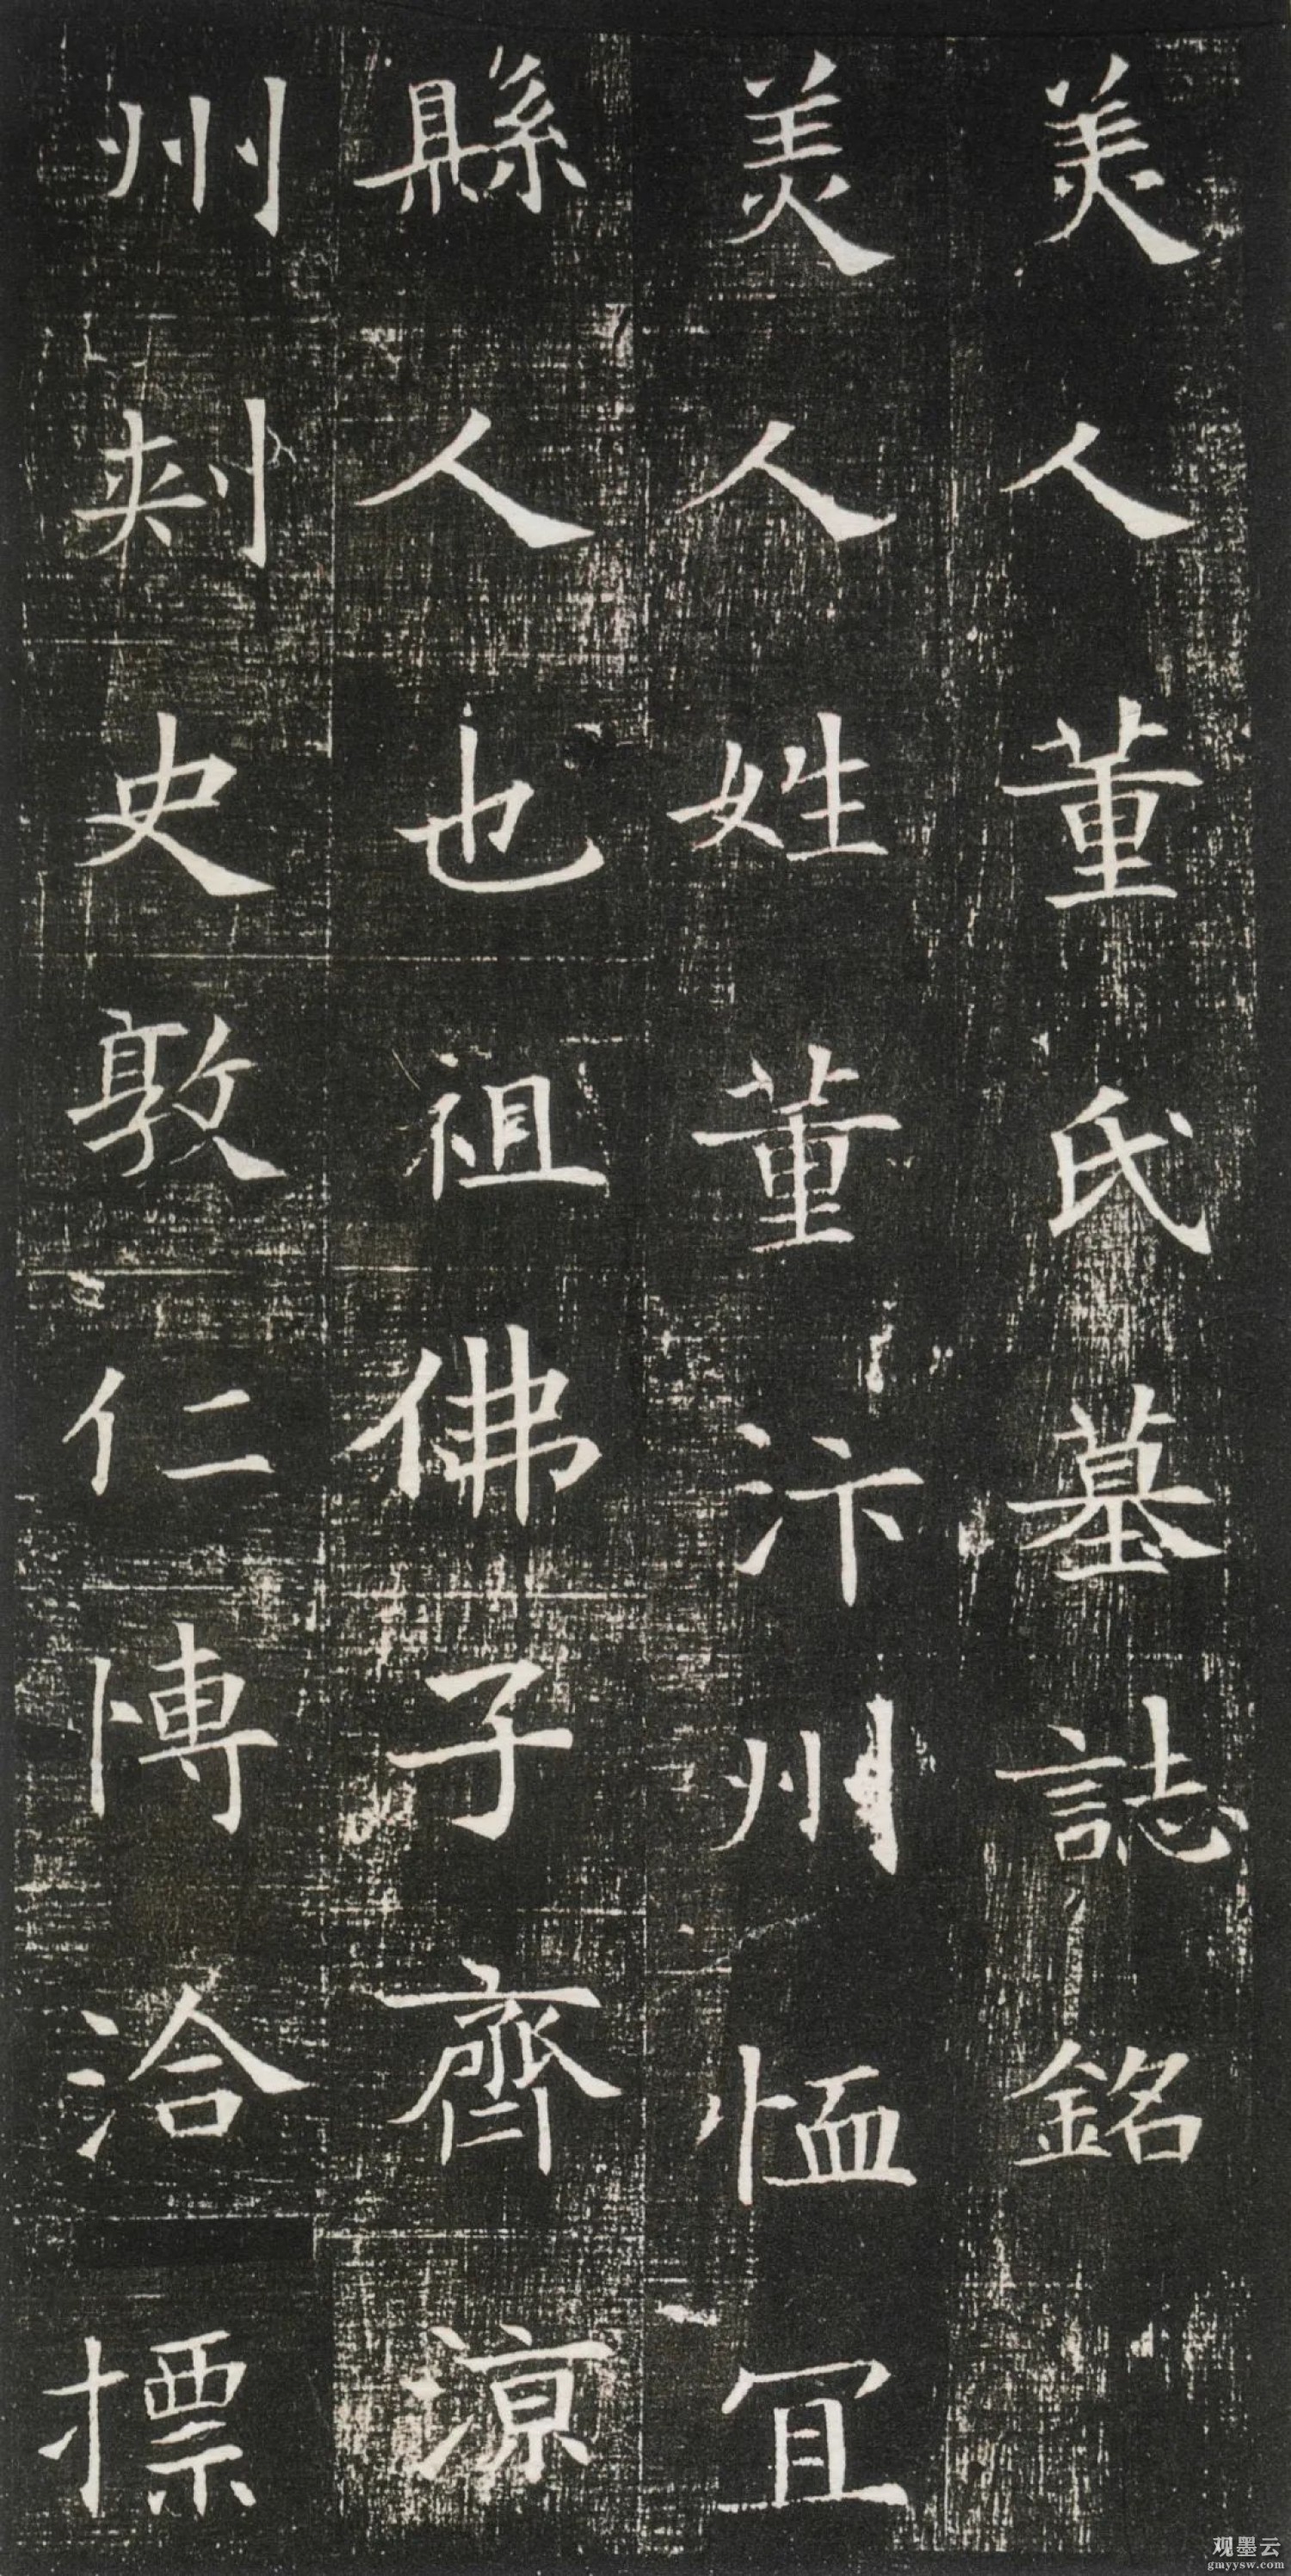 美人董氏墓誌銘
美人姓董汴州恤冝
縣人也祖佛子齊涼
州刺史敦仁博洽標
观墨云
gmyysw.com